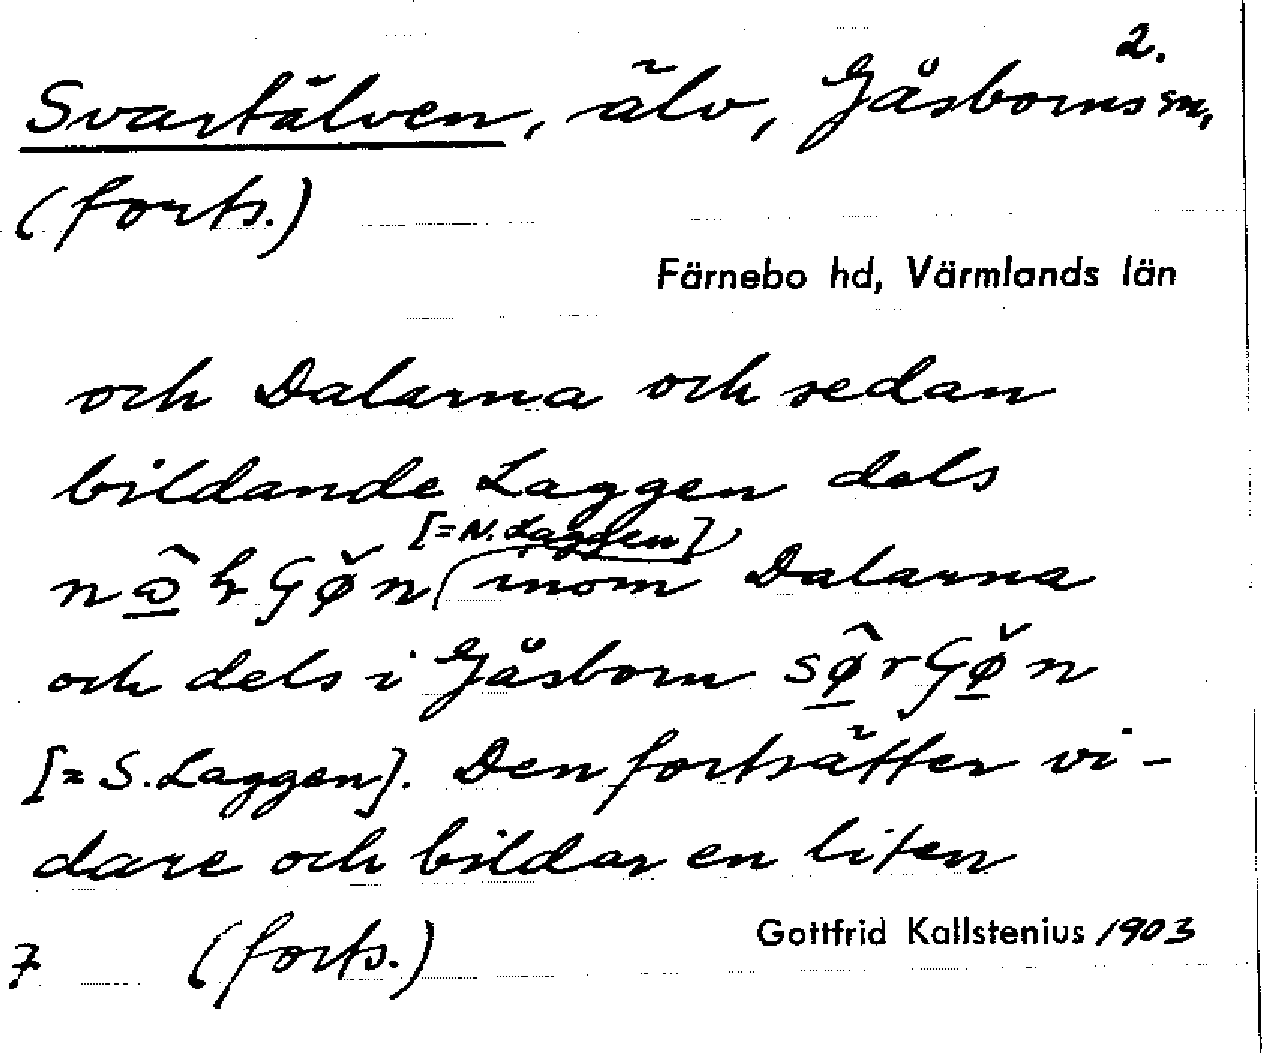 2.
Svartälven, älv, Gåsborns sn,
(forts.)
Färnebo hd, Värmlands län
och Dalarna och sedan
bildande Laggen dels
[= N. Laggen]
inom Dalarna
och dels i Gåsborn
[= S. Laggen]. Den fortsätter vi-
dare och bildar en liten
7 (forts.) Gottfrid Kallstenius 1903